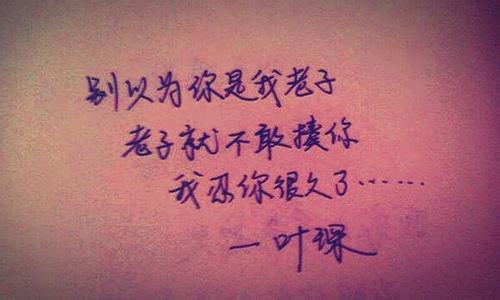 别以为你是我老子
老子就不敢揍你
我忍你很久了……
一叶琛